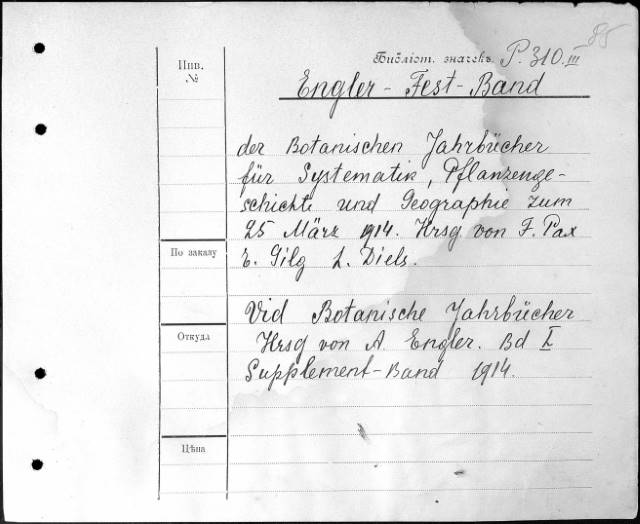 85
Инв.
№
Библіот. значекъ P. 310.III
Engler - Fest - Band
der Botanischen Jahrbücher
für Systematik, Pflanzenge-
schichte und Geographie zum
25 März 1914. Hrsg von F. Pax
E. Gilg L. Diels.
По заказу
Vid Botanische Jahrbücher
Откуда
Hrsg von A. Engler. Bd L
Supplement-Band 1914.
Цѣна